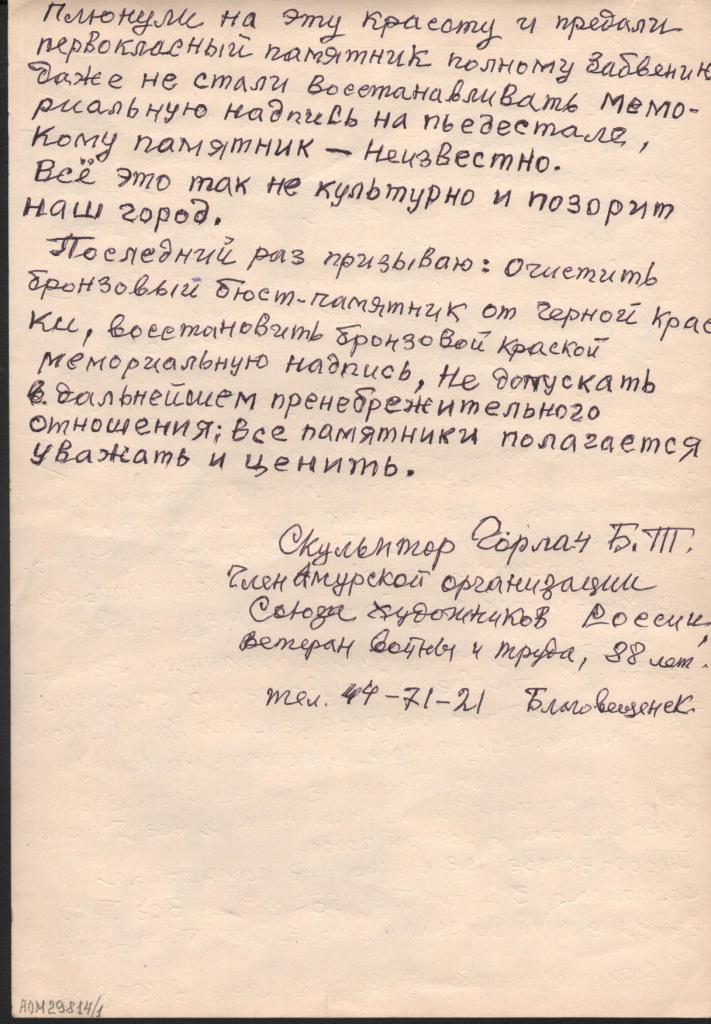 Плюнули на эту красоту и предали
первокласный памятник полному забвению
даже не стали восстанавливать мемо-
риальную надпись на пьедестале,
кому памятник — неизвестно.
Всё это так не культурно и позорит
наш город.
Последний раз призываю: очистить
бронзовый бюст-памятник от черной крас
ки, восстановить бронзовой краской
мемориальную надпись, не допускать
в дальнейшем пренебрежительного
отношения; все памятники полагается
уважать и ценить.
Скульптор Горлач Б.Т.
Член Амурской организации
Союза художников России,
ветеран войны и труда, 88 лет.
тел. 44-71-21 Благовещенск.
АОМ29814/1